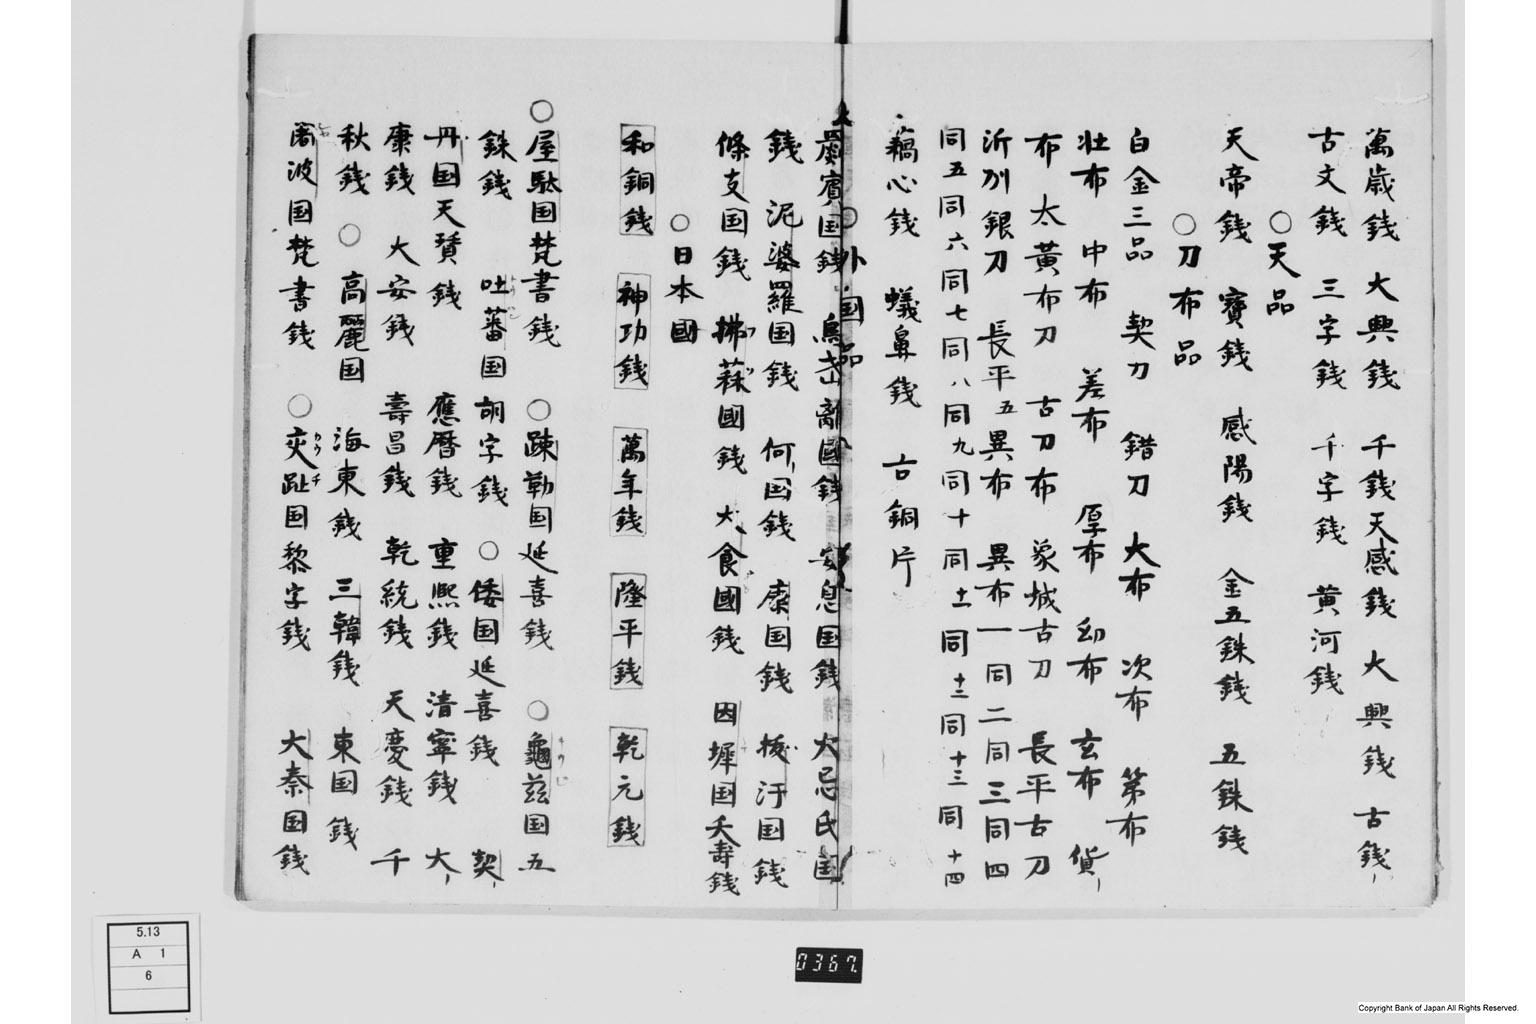 萬歳銭 大興銭 千銭天感銭 大興銭 古銭
古文銭 三字銭 千字銭 黄河銭
○天品
天帝銭 寶銭 感陽銭 金五銖銭 五銖銭
○刀布品
白金三品 契刀 錯刀 大布 次布 第布
壮布 中布 差布 厚布 幼布 玄布 貨
布 太黄布刀 古刀布 象城古刀 長平古刀
沂別銀刀 長平五異布 異布一同二同三同四
同五同六同七同八同九同十同十一同十二同十三同十四
藕心銭 蟻鼻銭 古銅片
○外国品
罽賓国銭 烏 離國銭 安息国銭 大 氏国
銭 泥婆羅国銭 何国銭 康国銭 汙国銭
條支国銭 拂菻國銭 大食國銭 因墀国天壽銭
○日本國
和銅銭 神功銭 萬年銭 隆平銭 乾元銭
○屋駄国梵書銭 ○疎勒国延喜銭 ○龜茲国五
銖銭 吐蕃国胡字銭 ○倭国延喜銭 契
丹国天賛銭 應暦銭 重熙銭 清寧銭 大
康銭 大安銭 壽昌銭 乾統銭 天慶銭 千
秋銭 ○高麗国 海東銭 三韓銭 東国銭
闍波国梵書銭 ○交趾国黎字銭 大秦国銭
5.13
A 1
6
0367
Copyright Bank of Japan All Rights Reserved.